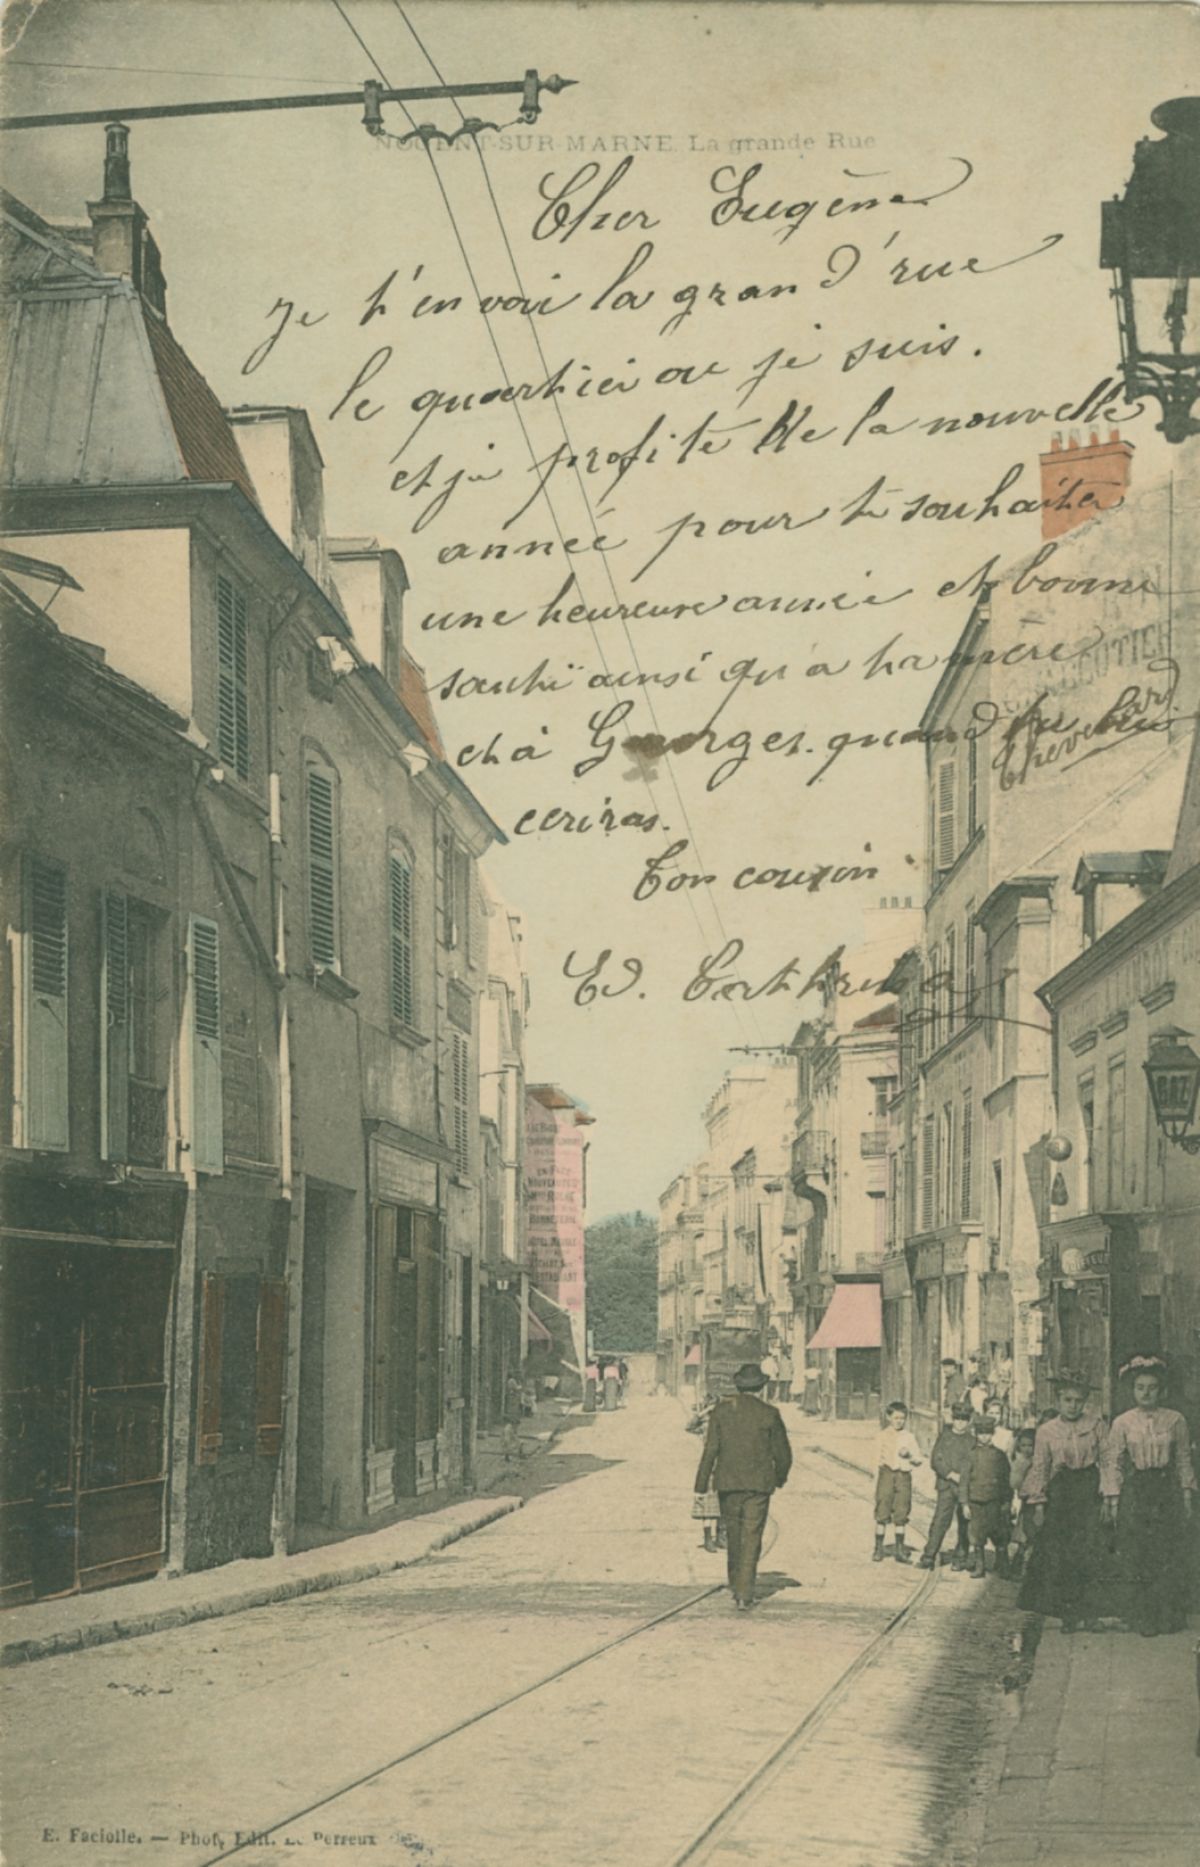 NOGENT-SUR-MARNE. La grande Rue
Cher Eugène
Je t'envoi la grand'rue
le quartier ou je suis.
et je profite de la nouvelle
année pour te souhaiter
une heureuse année et bonne
santé ainsi qu'a ta mère
et à Georges. quand tu lui
ecriras.
Ton cousin
Ed.
EN FACE
GAZ
E. Faciolle. — Phot. Edit. Le Perreux